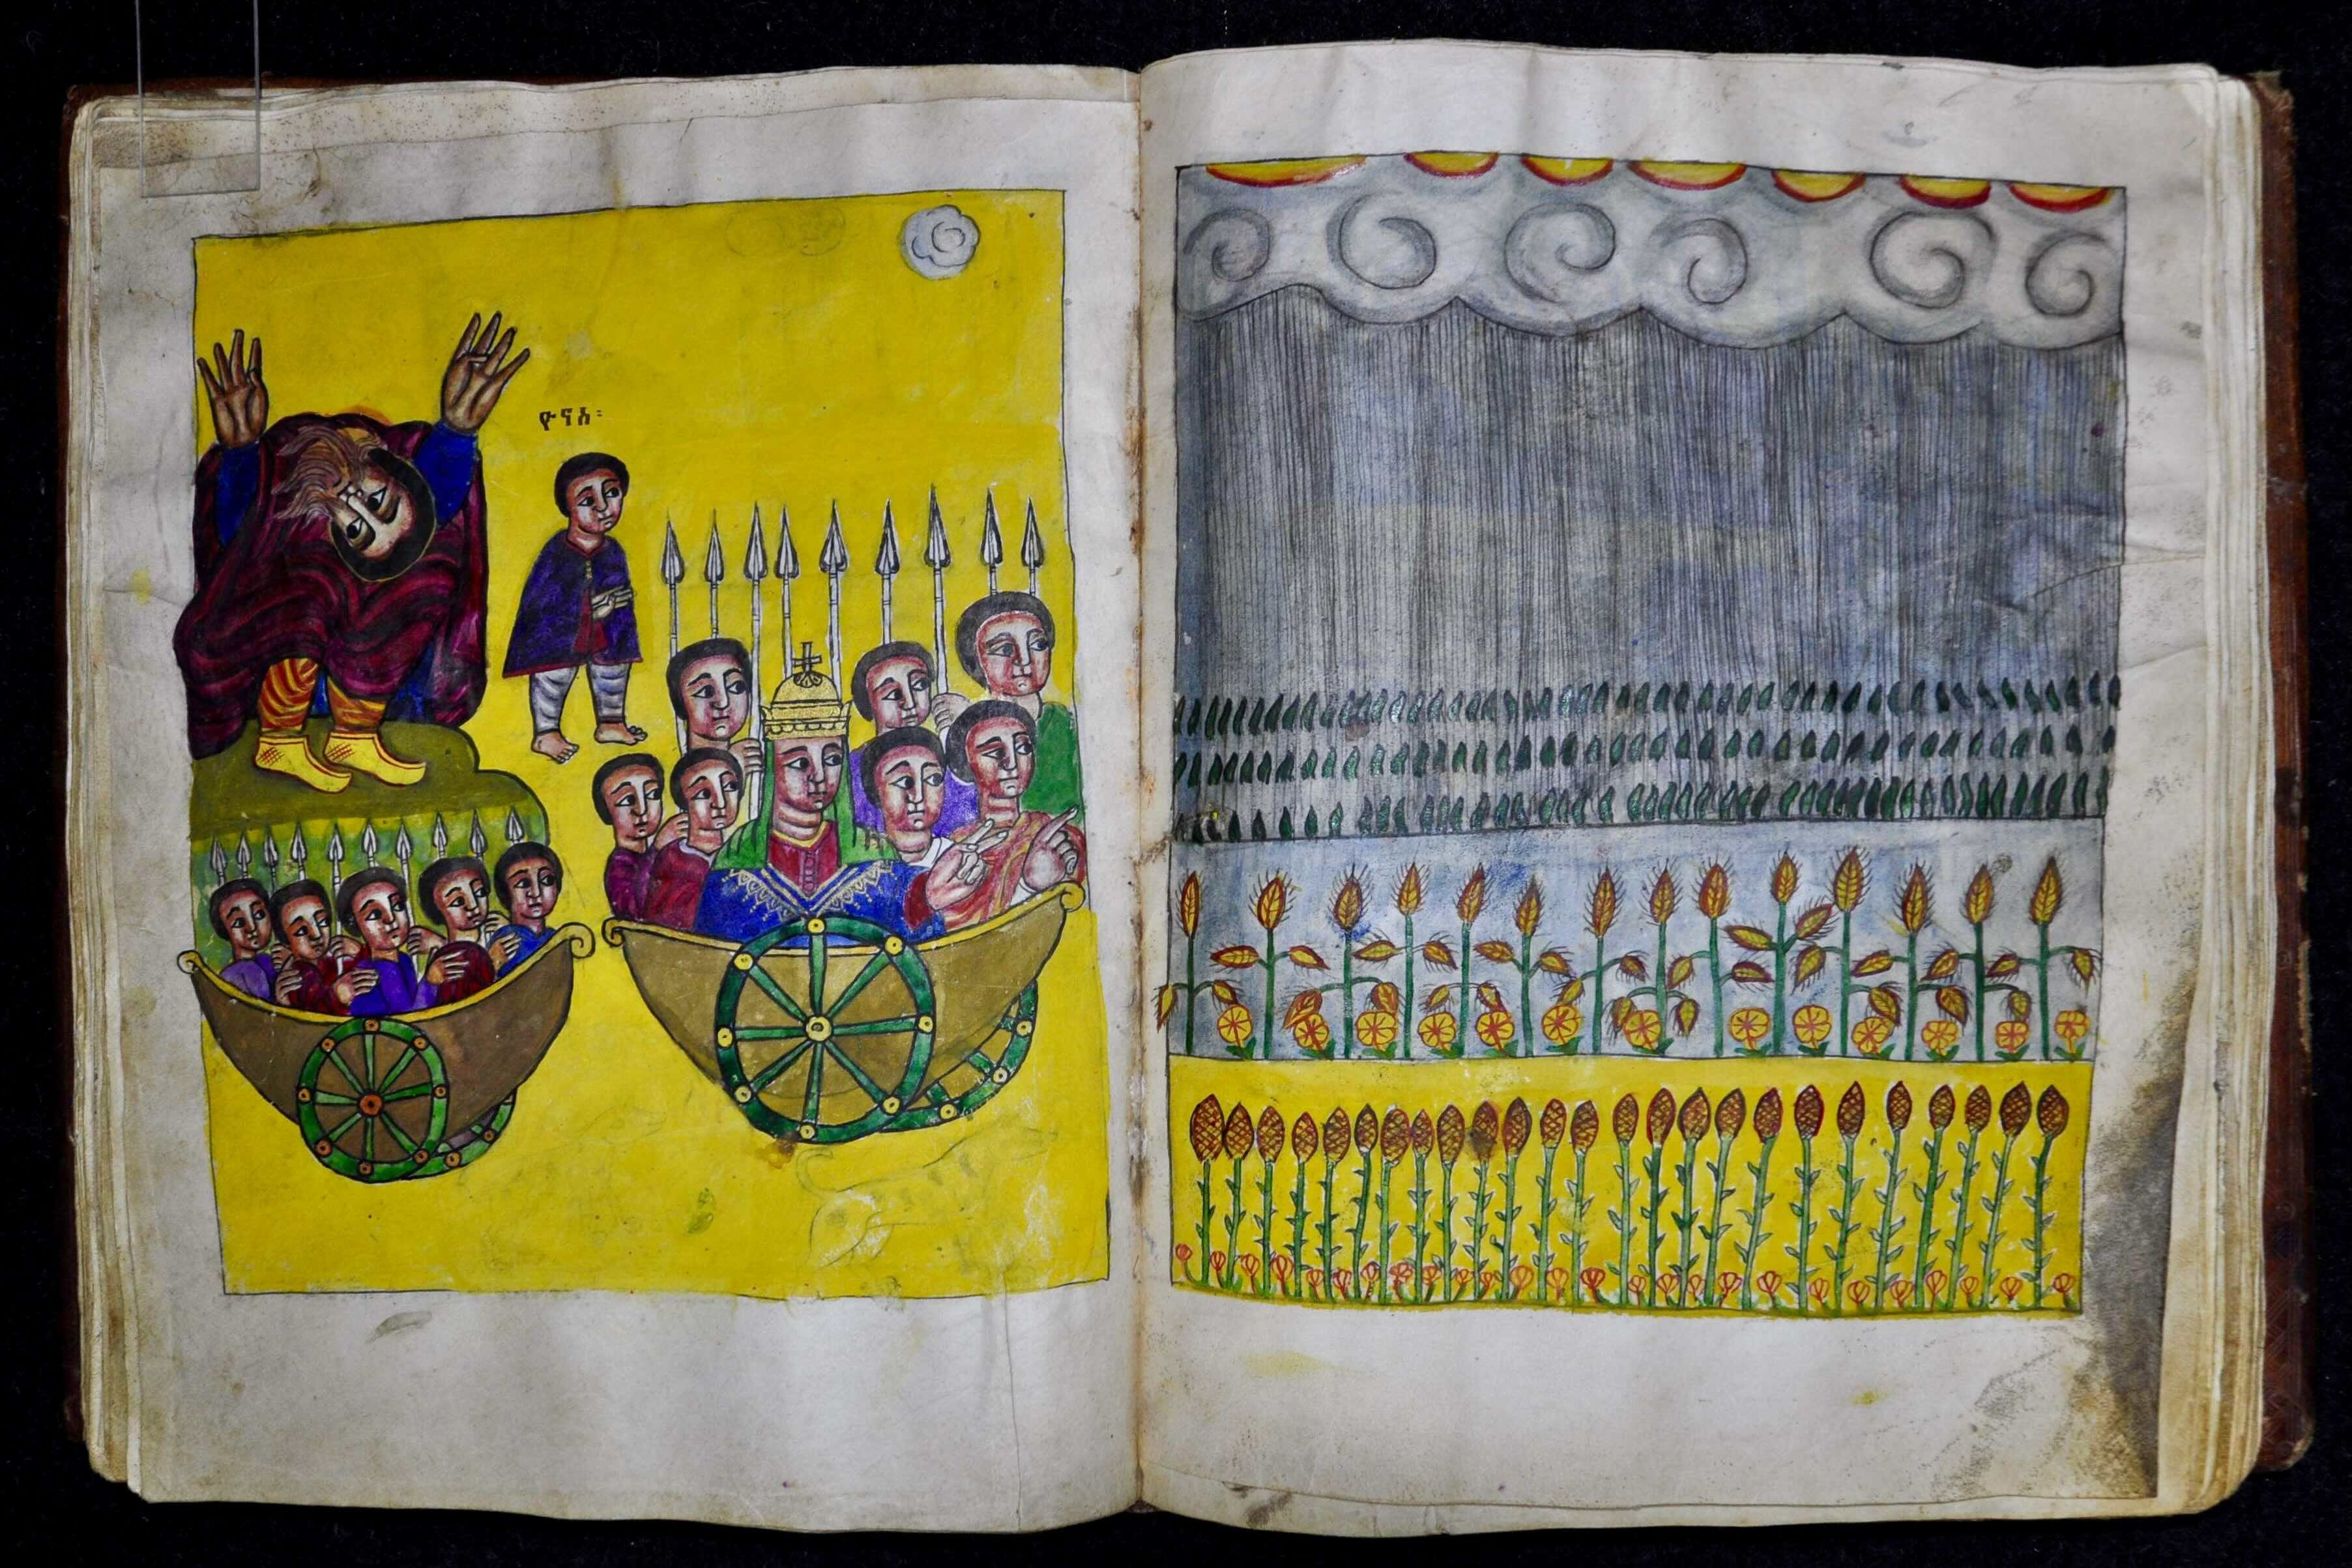 ዮናስ፡